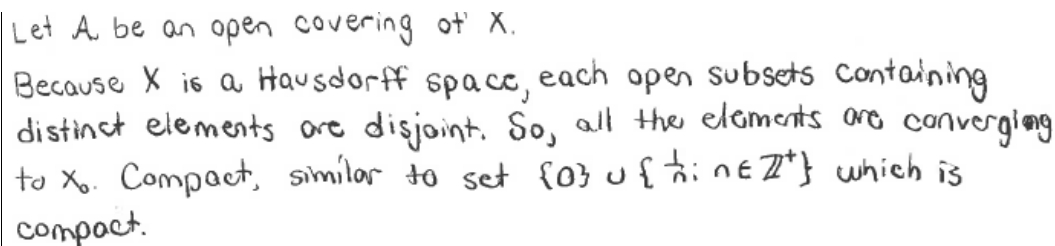 Let A be an open covering of X.
Because X is a Hausdorff space, each open subsets containing
distinct elements are disjoint. So, all the elements are converging
to X₀. Compact, similar to set {0} ∪ {1/n : n ∈ ℤ⁺} which is
compact.